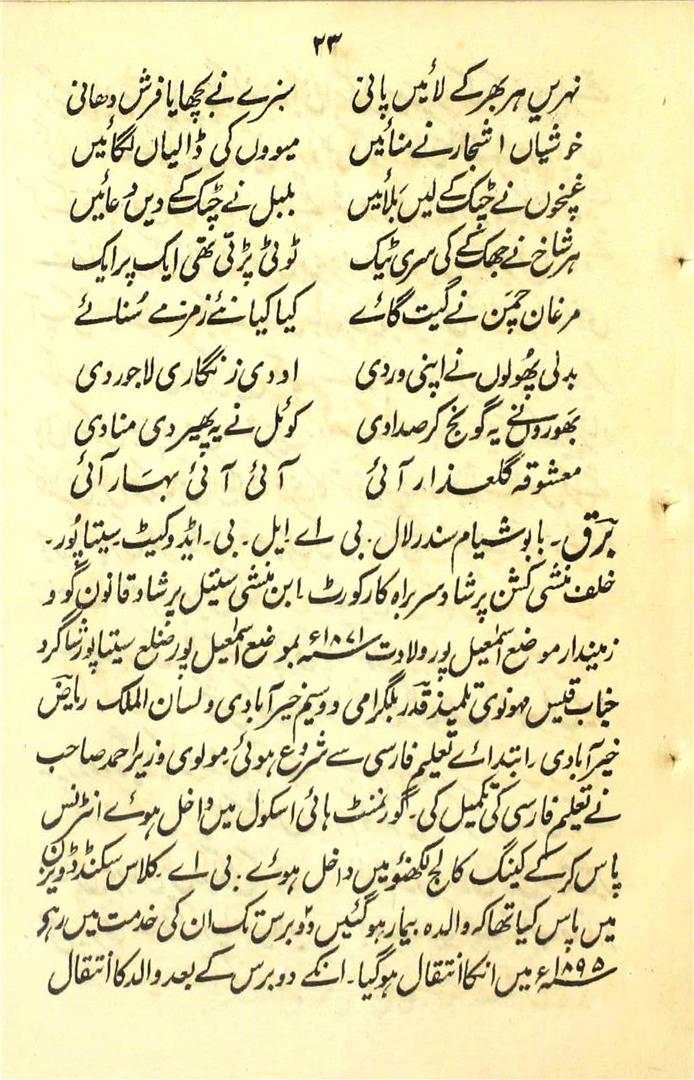 ۲۳
نہریں ہر بھر کے لائیں پانی سبزے نے بچھایا فرش دھانی
خوشیاں اشجار نے منائیں میووں کی ڈالیاں لگائیں
غنچوں نے چٹک کے لیں بلائیں بلبل نے چہک کے دیں دعائیں
ہر شاخ نے جھک کے کی سری ٹیک ٹوٹی پڑتی تھی ایک پر ایک
مرغان چمن نے گیت گائے کیا کیا نئے زمزمے سُنائے
بدلی پھُولوں نے اپنی وردی اودی زنگاری لاجوردی
بھَوروں نے یہ گونج کر صدا دی کوئل نے یہ پھیر دی منادی
معشوقہ گلعذار آئی آئی آئی بہار آئی
برق۔ بابو شیام سندر لال۔ بی اے ایل۔ بی۔ ایڈوکیٹ۔ سیتاپُور۔
خلف منشی کشن پرشاد سربراہ کار کورٹ۔ ابن منشی سیتل پرشاد قانون گو و
زمیندار موضع اسمٰعیل پور ولادت ۱۸۷۱ء بموضع اسمٰعیل پور ضلع سیتاپور شاگرد
جناب قیس مہونوی تلمیذ قدر بلگرامی و وسیم خیرآبادی و لسان الملک ریاض
خیرآبادی۔ ابتدائے تعلیم فارسی سے شروع ہوئی مولوی وزیر احمد صاحب
نے تعلیم فارسی کی تکمیل کی۔ گورنمنٹ ہائی اسکول میں داخل ہوئے انٹرنس
پاس کر کے کیننگ کالج لکھنؤ میں داخل ہوئے۔ بی اے۔ کلاس سکنڈ ڈویزن
میں پاس کیا تھا کہ والدہ بیمار ہو گئیں دو برس تک ان کی خدمت میں رہے
۱۸۹۵ء میں انکا انتقال ہو گیا۔ انکے دو برس کے بعد والد کا انتقال